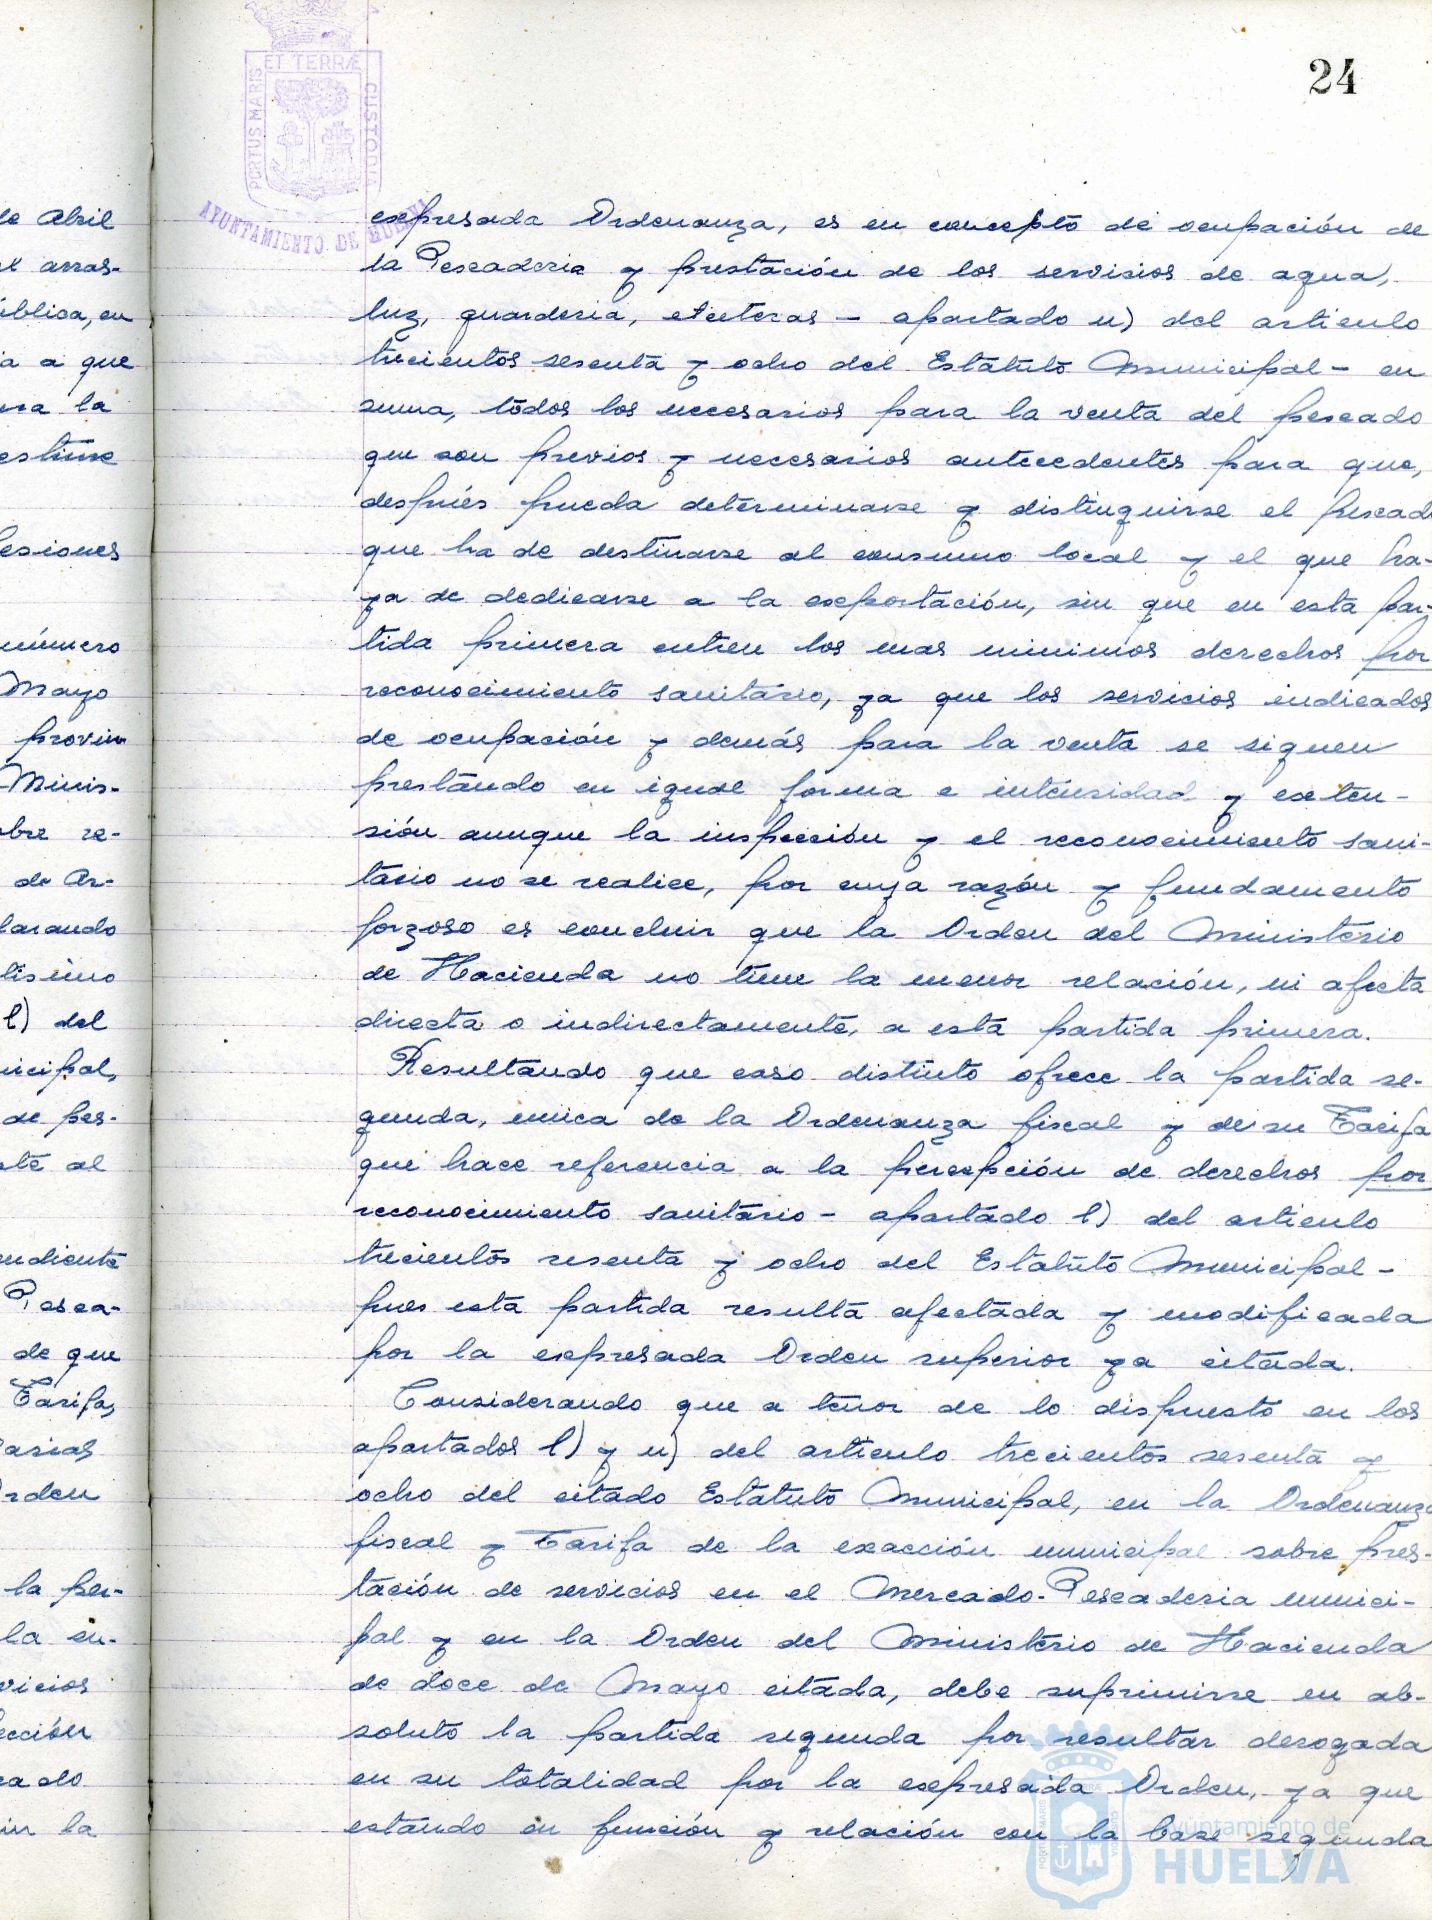 24
ET TERRÆ
PORTUS MARIS
CUSTODIA
AYUNTAMIENTO DE HUELVA
de Abril
arras-
ública, en
a a que
la
estime
esiones
número
Mayo
provin
Minis-
bre re-
de Ar-
larando
lisimo
l) del
nicipal,
de pes-
al
endiente
Pesca-
de que
Tarifa,
rden
la per-
la en-
vicios
ección
cado
la
expresada Ordenanza, es en concepto de ocupación de
la Pescaderia y prestación de los servicios de agua,
luz, guarderia, etcéteras - apartado u) del articulo
trecientos sesenta y ocho del Estatuto Municipal - en
suma, todos los necesarios para la venta del pescado
que son previos y necesarios antecedentes para que,
después pueda determinarse y distinguirse el pescado
que ha de destinarse al consumo local y el que ha-
ya de dedicarse a la exportación, sin que en esta par-
tida primera entren los mas minimos derechos por
reconocimiento sanitario, ya que los servicios indicados
de ocupación y demás para la venta se siguen
prestando en igual forma e intensidad y exten-
sión aunque la inspección y el reconocimiento sani-
tario no se realice, por cuya razón y fundamento
forzoso es concluir que la Orden del Ministerio
de Hacienda no tiene la menor relación, ni afecta
directa o indirectamente, a esta partida primera.
Resultando que caso distinto ofrece la partida se-
gunda, unica de la Ordenanza fiscal y de su Tarifa
que hace referencia a la percepción de derechos por
reconocimiento sanitario - apartado l) del articulo
trecientos sesenta y ocho del Estatuto Municipal -
pues esta partida resulta afectada y modificada
por la expresada Orden superior ya citada.
Considerando que a tenor de lo dispuesto en los
apartados l) y u) del articulo trecientos sesenta y
ocho del citado Estatuto Municipal, en la Ordenanza
fiscal y Tarifa de la exacción municipal sobre pres-
tación de servicios en el Mercado-Pescaderia munici-
pal y en la Orden del Ministerio de Hacienda
de doce de Mayo citada, debe suprimirse en ab-
soluto la partida segunda por resultar derogada
en su totalidad por la expresada Orden, ya que
estando en función y relación con la base segunda
Ayuntamiento de
HUELVA